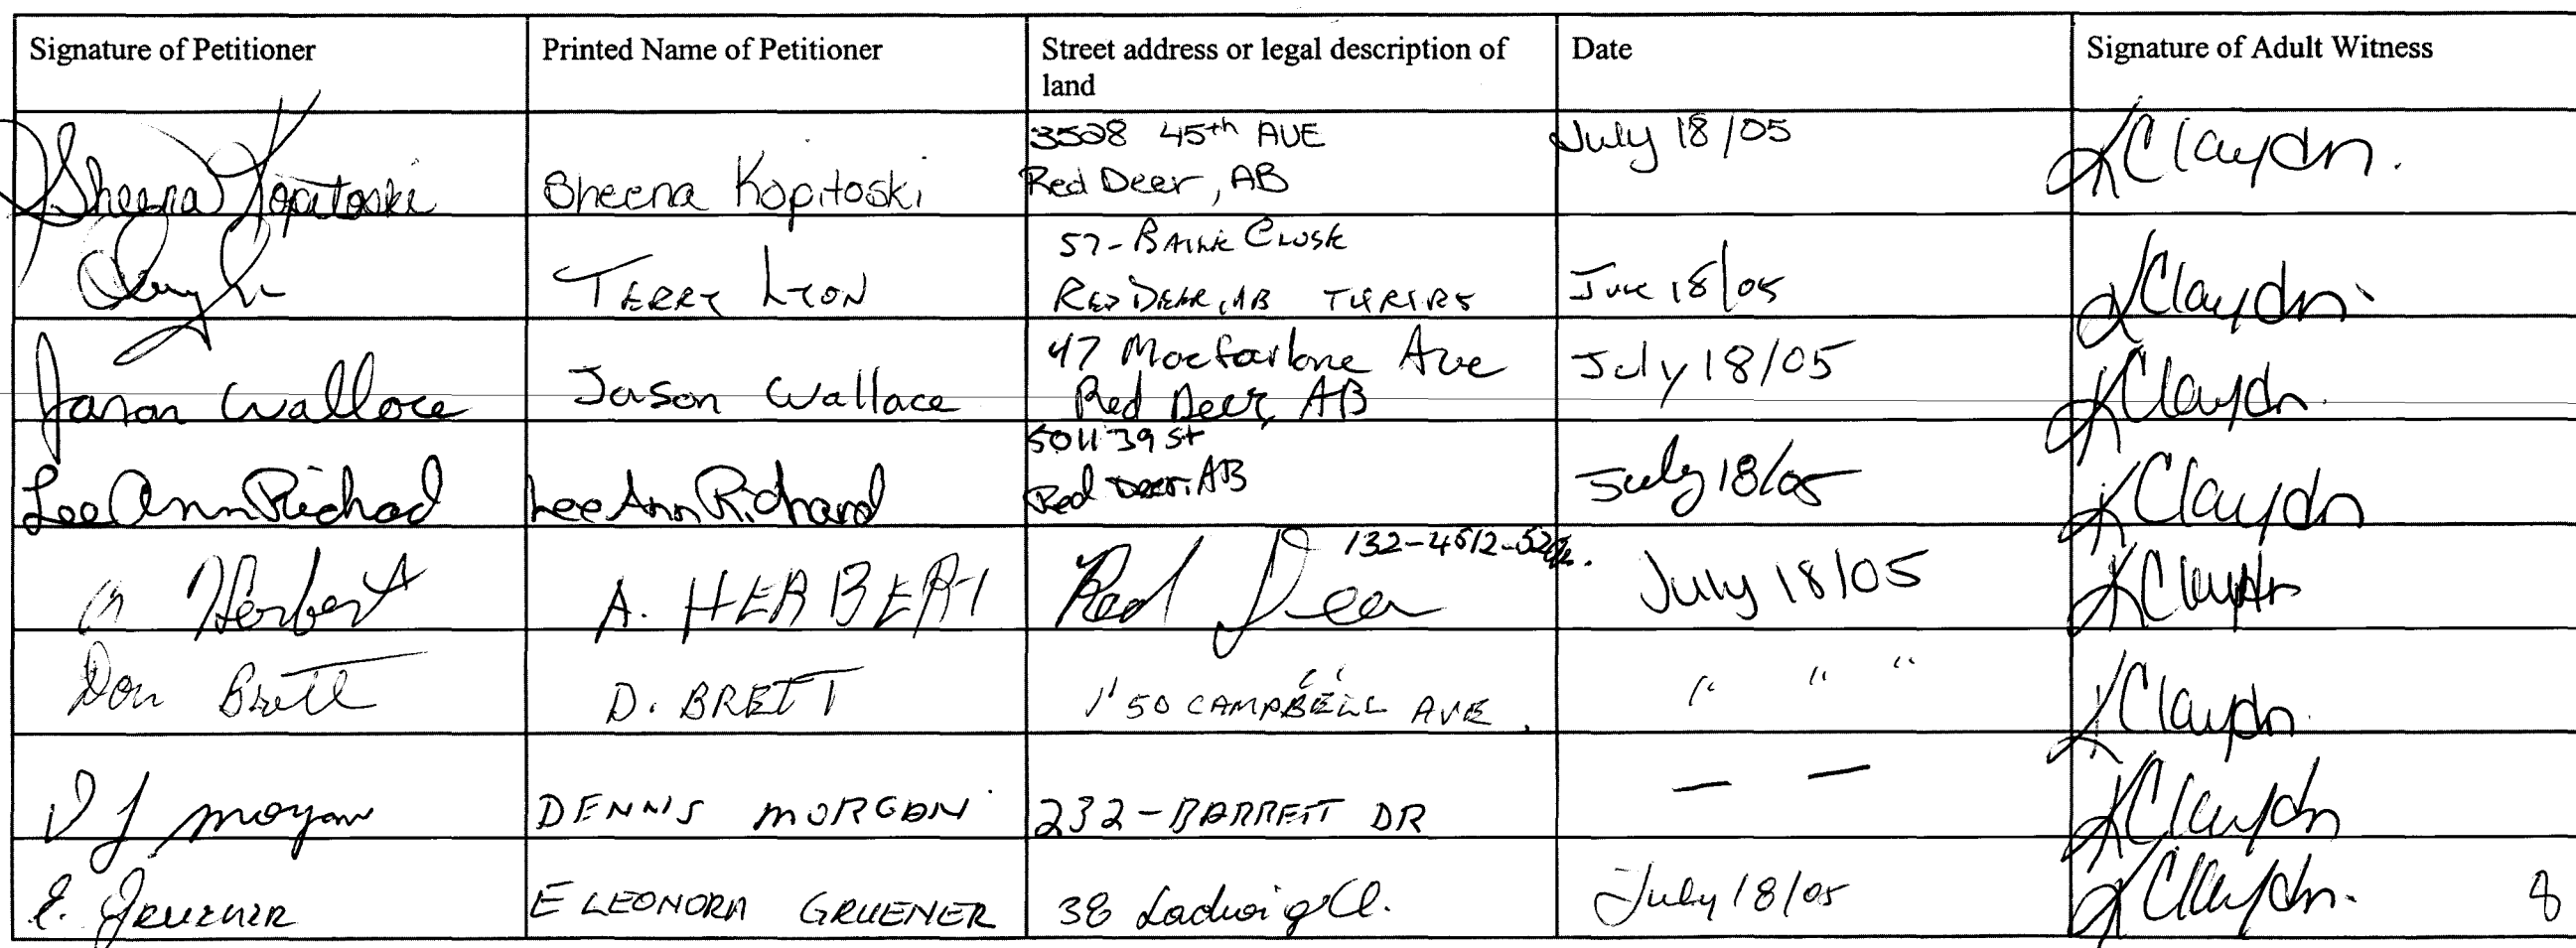 Signature of Petitioner
Printed Name of Petitioner
Street address or legal description of
land
Date
Signature of Adult Witness
Sheena Kopitoski
Sheena Kopitoski
3508 45th AVE
Red Deer, AB
July 18/05
KClaydn.
TERRY LYON
57-
CLOSE
RED DEER, AB
18/05
KClaydn.
Jason Wallace
Jason Wallace
47 Macfarlane Ave
Red Deer, AB
July 18/05
KClaydn.
LeeAnn Richard
LeeAnn Richard
5011 39 St
Red Deer, AB
July 18/05
KClaydn
A Herbert
A. HERBERT
132-4512-52
Red Deer
July 18/05
KClaydn
Don Brett
D. BRETT
" "
150 CAMPBELL AVE.
" " "
KClaydn.
D J Morgan
DENNIS MORGAN
232-BARRETT DR
— —
KClaydn
E. Gruener
ELEONORA GRUENER
38 Ladwig Cl.
July 18/05
KClaydn.
8